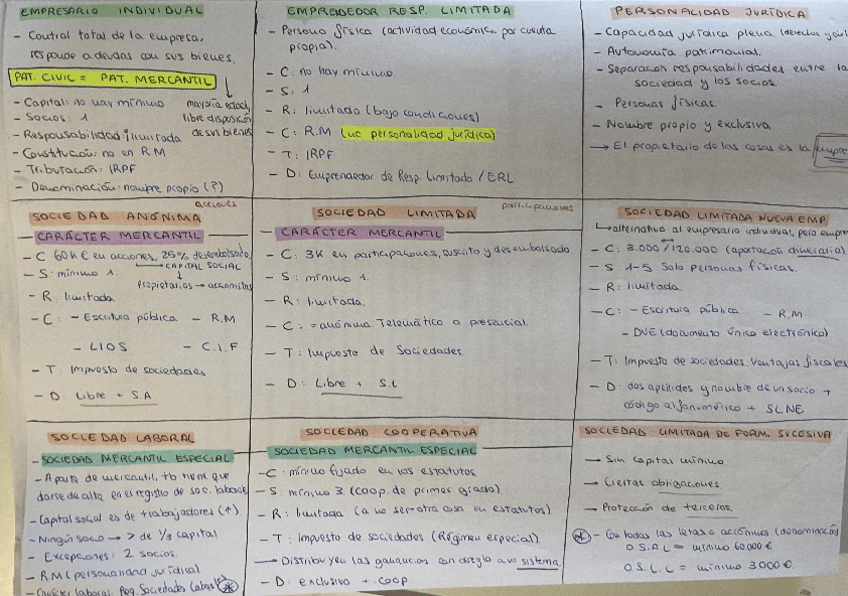 EMPRESARIO INDIVIDUAL
- Control total de la empresa,
responde a deudas con sus bienes.
PAT. CIVIL = PAT. MERCANTIL
- Capital: no hay mínimo
mayoría edad,
- Socios: 1
libre disposición
- Responsabilidad ilimitada
de sus bienes
- Constitución: no en RM
- Tributación: IRPF
- Denominación: nombre propio (?)
EMPRENDEDOR RESP. LIMITADA
- Persona física (actividad económica por cuenta
propia).
- C: no hay mínimo.
- S: 1
- R: limitada (bajo condiciones)
- C: R.M (no personalidad jurídica)
- T: IRPF
- D: Emprendedor de Resp. Limitada / ERL
PERSONALIDAD JURÍDICA
- Capacidad jurídica plena (derechos y
- Autonomía patrimonial.
- Separación responsabilidades entre la
sociedad y los socios.
- Personas físicas.
- Nombre propio y exclusivo
→ El propietario de las cosas es la empre
acciones
SOCIEDAD ANÓNIMA
- CARÁCTER MERCANTIL
- C 60K€ en acciones, 25% desembolsado
→ CAPITAL SOCIAL
- S: mínimo 1.
Propietarios → accionistas
- R. limitada
- C: - Escritura pública - R.M
- LIOS - C.I.F
- T: Impuesto de sociedades
- D Libre + S.A
participaciones
SOCIEDAD LIMITADA
- CARÁCTER MERCANTIL
- C: 3K en participaciones, suscrito y desembolsado
- S: mínimo 1.
- R: limitada.
- C: = anónima. Telemática o presencial.
- T: Impuesto de Sociedades.
- D: Libre + S.L
SOCIEDAD LIMITADA NUEVA EMP.
alternativa al empresario individual, pero empre
- C: 3.000/120.000 (aportación dineraria)
- S: 1-5. Solo personas físicas.
- R: limitada.
- C: - Escritura pública - R.M
- DUE (documento único electrónico)
- T: Impuesto de sociedades. Ventajas fiscales
- D: dos apellidos y nombre de un socio +
código alfanumérico + SLNE
SOCIEDAD LABORAL
- SOCIEDAD MERCANTIL ESPECIAL
- Aparte de mercantil, tb tiene que
darse de alta en el registro de soc. labora
- Capital social es de trabajadores (↑)
- Ningún socio → > de 1/3 capital
- Excepciones: 2 socios.
- RM (personalidad jurídica)
- Carácter laboral. Reg. Sociedades Laborales
SOCIEDAD COOPERATIVA
SOCIEDAD MERCANTIL ESPECIAL
- C: mínimo fijado en los estatutos
- S: mínimo 3 (coop. de primer grado)
- R: limitada (a no ser otra cosa en estatutos)
- T: Impuesto de sociedades (Régimen especial)
→ Distribuyen las ganancias con arreglo a un sistema.
- D: exclusiva + COOP
SOCIEDAD LIMITADA DE FORM. SUCESIVA
→ Sin capital mínimo
→ Ciertas obligaciones
→ Protección de terceros.
- Con todas las letras o acrónimos (denominación)
O S.A.L = mínimo 60.000€
O S.L.L = mínimo 3000€.